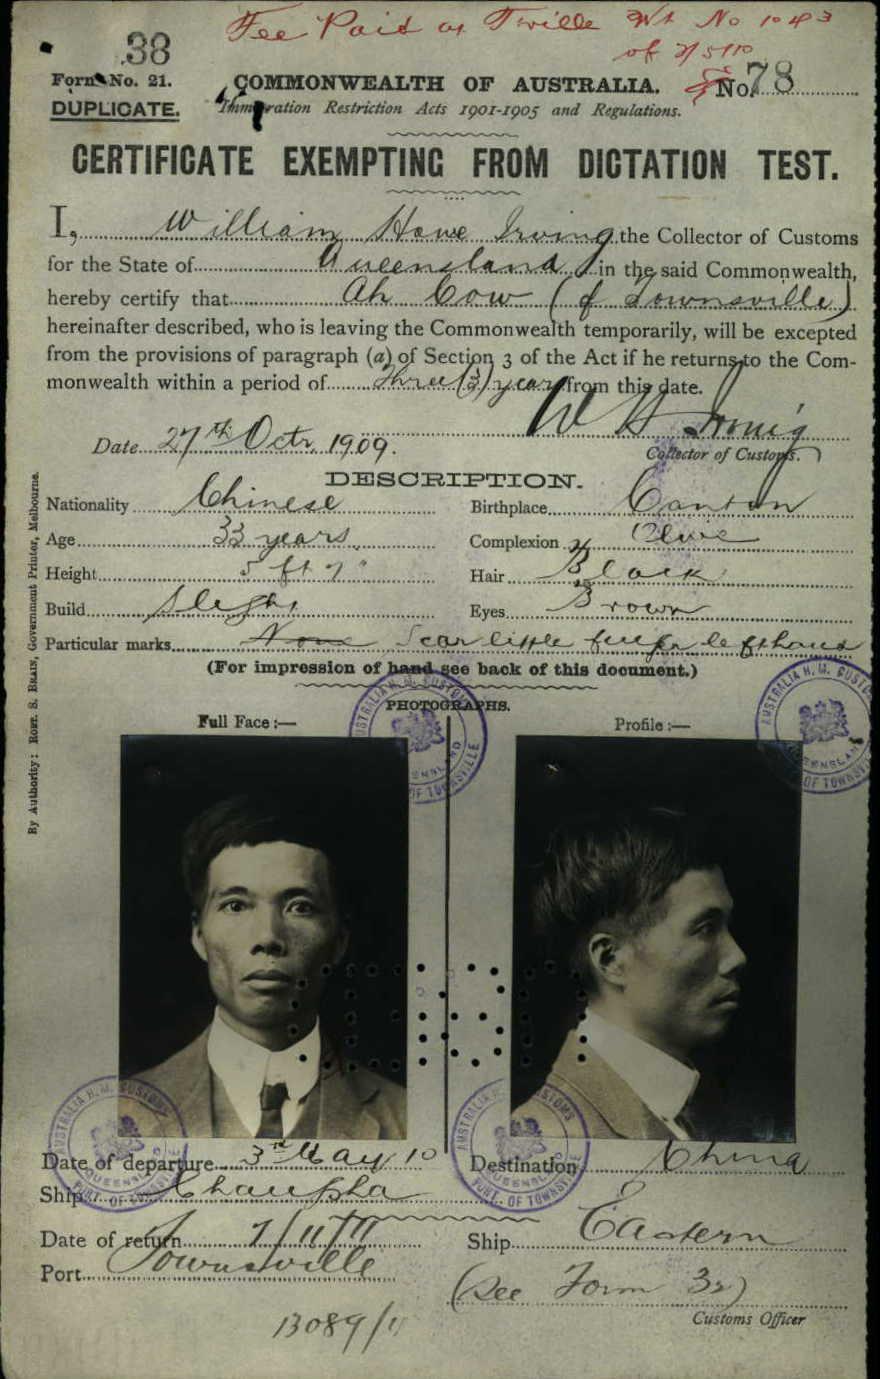 Fee Paid at T'ville Wt No 1043
of 2/5/10
38
Form No. 21.
DUPLICATE.
COMMONWEALTH OF AUSTRALIA.
No. 78
Immigration Restriction Acts 1901-1905 and Regulations.
CERTIFICATE EXEMPTING FROM DICTATION TEST.
I, William Howe Irving the Collector of Customs
for the State of Queensland in the said Commonwealth,
hereby certify that Ah Cow (of Townsville)
hereinafter described, who is leaving the Commonwealth temporarily, will be excepted
from the provisions of paragraph (a) of Section 3 of the Act if he returns to the Com-
monwealth within a period of Three (3) years from this date.
W H Irving
Date 27th Octr 1909.
Collector of Customs.
DESCRIPTION.
Nationality Chinese
Birthplace Canton
Age 33 years
Complexion Olive
Height 5 ft 7"
Hair Black
Build Slight
Eyes Brown
Particular marks None Scar little finger left hand
(For impression of hand see back of this document.)
PHOTOGRAPHS.
Full Face:—
Profile:—
AUSTRALIA H. M. CUSTOMS
QUEENSLAND
PORT OF TOWNSVILLE
By Authority: ROBT. S. BRAIN, Government Printer, Melbourne.
Date of departure 3rd May 10
Destination China
Ship
Date of return 7/11/11
Ship Eastern
Port Townsville
(See Form 32)
13089/11
Customs Officer